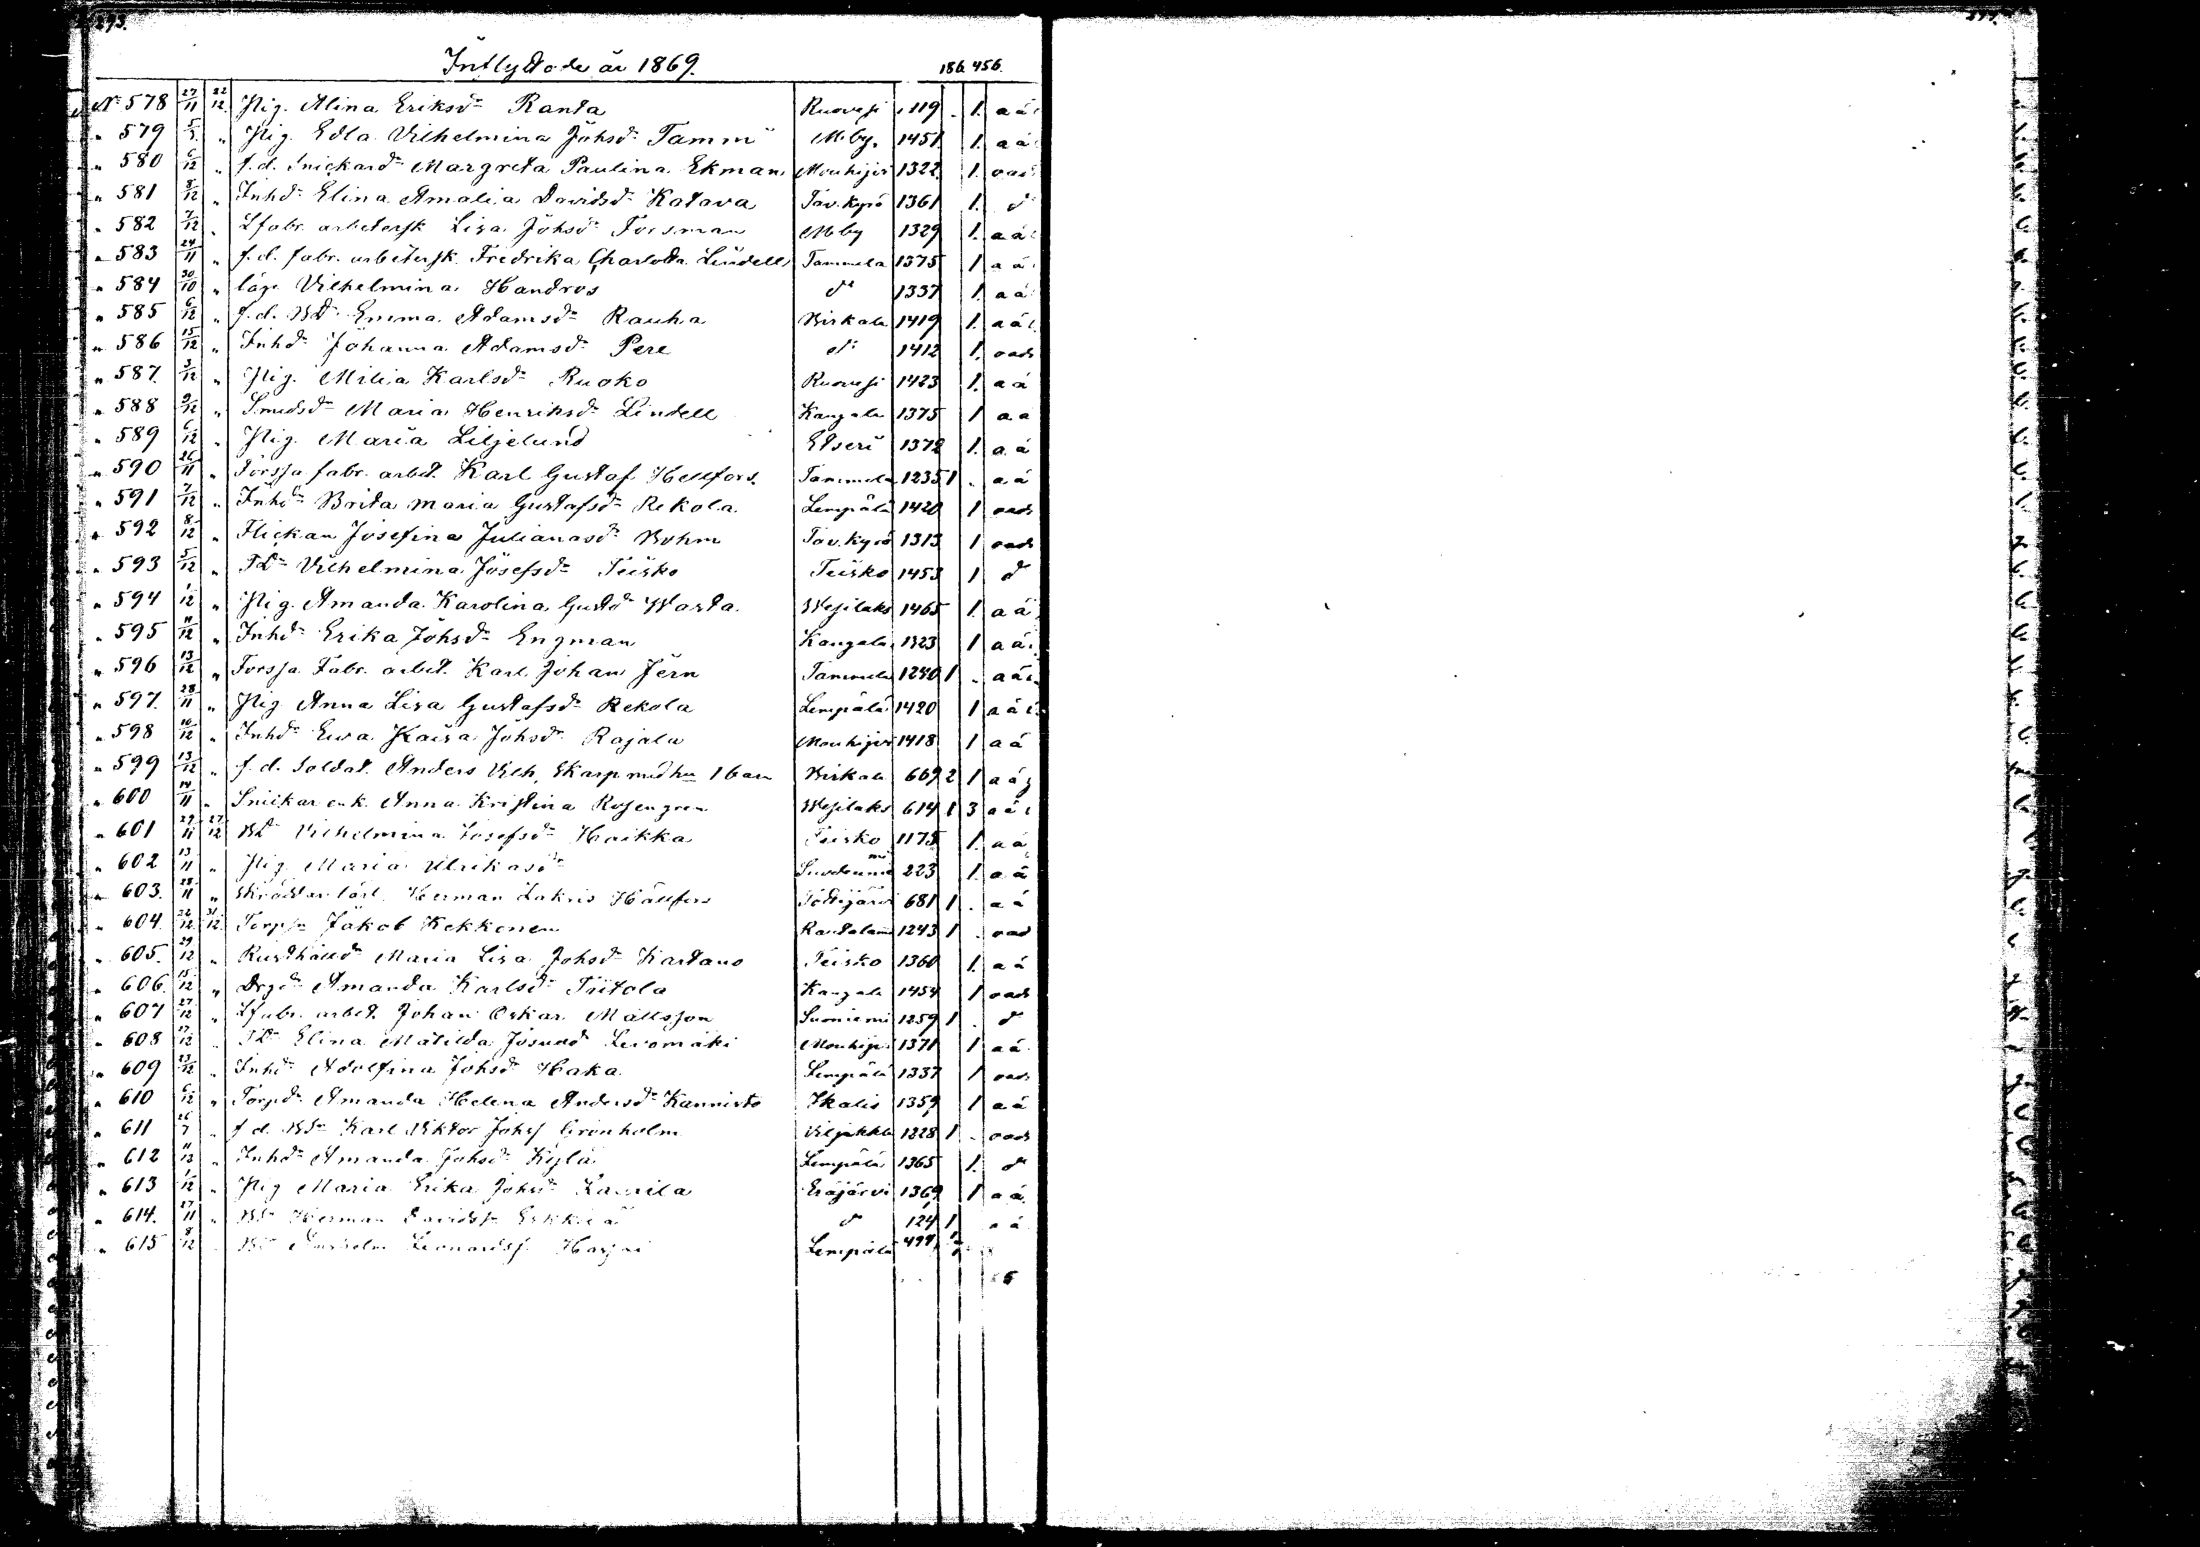 293.
Inflyttade år 1869.
186 456.
№ 578 27/11 22/12. Pig. Alina Eriksdr Ranta Ruovesi 119 . 1. a ä
" 579 5/ " Pig. Edla Vilhelmina Johsdr Tammi Mby. 1451 1. a ä
" 580 6/12 " f.d. Snickardr Margreta Paulina Ekman Mouhijer 1322 1. oads
" 581 8/12 " Inhdr Elina Amalia Davidsdr Katava Tav. Kyrö 1361 1. d
" 582 7/12 " Lfabr. arbetersk Lisa Johsdr Forsman Mby 1329 1. a ä
" 583 24/11 " f.d. fabr. arbetersk Fredrika Charlotta Lindell Tammela 1375 1 a ä
" 584 30/10 " lösa Vilhelmina Handros do 1337 1. a ä
" 585 6/12 " f.d. Bdr Emma Adamsdr Rauha Birkala 1419 1. a ä
" 586 15/12 " Inhdr Johanna Adamsdr Pere do 1412 1. oads
" 587. 3/12 " Pig. Milia Karlsdr Ruoko Ruovesi 1423 1. a ä
" 588 9/12 " Smedsdr Maria Henriksdr Lindell Kangala 1375 1 a a
" 589 6/12 " Pig. Maria Liljelund Etseri 1372 1. a ä
" 590 26/11 " Forssa fabr. arbet. Karl Gustaf Hellfors. Tammela 1235 1 . a ä
" 591 7/12 " Inhdr Brita Maria Gustafsdr Rekola Lempälä 1420 1 oads
" 592 8/12 " Flickan Josefina Julianasdr Bohm Tav. Kyrö 1313 1 oads
" 593 5/12 " Tdr Vilhelmina Josefsdr Teisko Teisko 1453 1 d
" 594 1/12 " Pig. Amanda Karolina Gustdr Warta Wesilaks 1465 1. a ä
" 595 11/12 " Inhdr Erika Johsdr Engman Kangala 1323 1 a ä
" 596 13/12 " Forssa Fabr. arbet. Karl Johan Jern Tammela 1240 1 . a ä
" 597. 28/11 " Pig Anna Lisa Gustafsdr Rekola Lempälä 1420 1 a ä
" 598 10/12 " Inhdr Eva Kaisa Johsdr Rajala Mouhijer 1418 1 a ä
" 599 13/12 " f.d. Soldat. Anders Vilh. Skarp med hu 1 barn Birkala 669 2 1 a ä
" 600 14/11 " Snickar enk. Anna Kristina Rosengren Wesilaks 614 1 3 a ä
" 601 29/11 27/12 Bdr Vilhelmina Josefsdr Haikka Teisko 1175 1. a ä
" 602 13/11 " Pig Maria Ulrikasdr 223 1. a ä
" 603. 28/11 " Skräddar lärl. Herman Zakris Hällfors 681 1 . a ä
" 604. 26/12 31/12 Torp Jakob Kekkonen 1243 1 . oad
" 605. 29/12 " Rusthålldr Maria Lisa Johsdr Kartano Teisko 1360 1. a ä
" 606. 15/12 " Drgdr Amanda Karlsdr Tiitola Kangala 1454 1 oads
" 607 27/12 " Lfabr. arbet. Johan Oskar Mattsson Suoniemi 1259 1 . d
" 608 17/12 Tdr Elina Matilda Levomäki Mouhijer 1371 1 a ä
" 609 23/12 " Inhdr Adolfina Johsdr Haka Lempälä 1337 1 oads
" 610 6/12 " Torpdr Amanda Helena Andersdr Kannisto Ikalis 1359 1 a ä
" 611 26/7 " f.d. Karl Viktor Johss Grönholm Viljakkla 1228 1 . oads
" 612 11/12 " Inhdr Amanda Johsdr Kylä Lempälä 1365 1. d
" 613 1/12 " Pig Maria Erika Johsdr Eräjärvi 1369 1 a ä
" 614. 27/11 " Herman Davidss Erkkilä do 124 1 a ä
" 615 8/12 Leonardss Harjai Lempälä 499